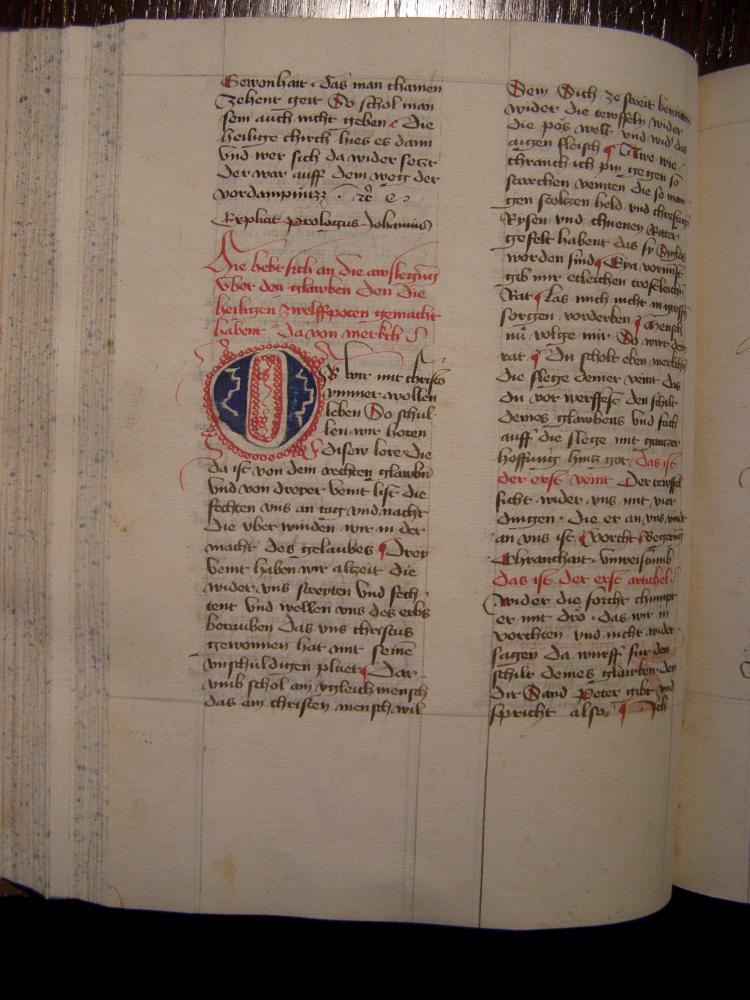 Gewonhait · das man chainen
zehent geit So schol man
sein auch nicht geben · Die
heilige chirch hies es dann
Vnd wer sich da wider setzt
der war auff dem weg der
verdampnuzz · etc
Explicit prologus Johannis
Hie hebt sich an die awslegung
vber den glawben den die
heiligen zwelffpoten gemacht
habent da von merkch
OB wir mit christo
ymmer wollen
leben So schul
len wir horen
diser lere die
da ist von dem rechten glawbn
vnd von dreyer veint list die
fechten vns an tag vnd nacht
die vber winden wir in der
macht des gelaubes Drey
veint haben wir alzeit die
wider vns streyten vnd fech
tent vnd wellen vns des erbs
berauben das vns christus
gewonnen hat mit seinē
vnschuldigen pluet Dar
vmb schol ain ygleich mensch
das ain christen mensch wil
sein Sich ze streit
wider die tewffeln wider
die pös welt vnd wid des
aigen fleisch Awe wie
chranch ich pin gegen so
starchen veinten die so man
gen stolczen held vnd
Rysen vnd chuenen Ritter
gefelt habent das sy
worden sind Eya
gib mir etleichen trostleichn
Rat Las mich nicht in grossn
sorgen verderben Mensch
nu volge mir So wirt der
rat Du scholt eben merkchn
die slege deiner veint das
du vor werffest den schilt
deines glawbens vnd
auff die slege mit gantzer
hoffnung hincz got das ist
der erst veint Der tewffl
ficht wider vns mit vier
dingen · Die er an vns
an vns ist Vorcht Begerung
Chranchait vnweishaib
das ist der erst artickel
wider die forcht chumpt
er mit dro · das wir in
vorchten vnd nicht wider
sagen da wurff fur den
schilt deines glawben den
dir Sand Peter gibt vnd
spricht also · Ich